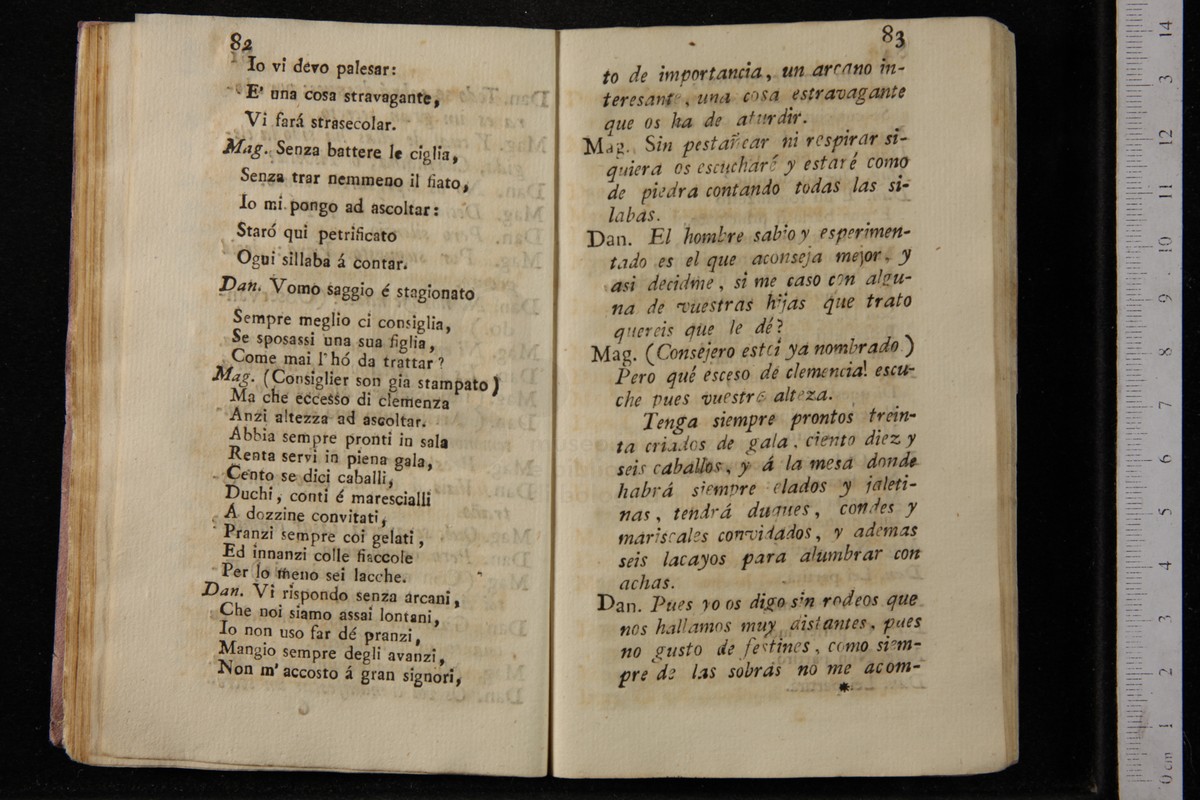 82
Io vi devo palesar:
E' una cosa stravagante,
Vi fará strasecolar.
Mag. Senza battere le ciglia,
Senza trar nemmeno il fiato,
Io mi pongo ad ascoltar:
Staró qui petrificato
Ogui sillaba á contar.
Dan. Vomo saggio é stagionato
Sempre meglio ci consiglia,
Se sposassi una sua figlia,
Come mai l' hó da trattar?
Mag. (Consiglier son gia stampato)
Ma che eccesso di clemenza
Anzi altezza ad ascoltar.
Abbia sempre pronti in sala
Renta servi in piena gala,
Cento se dici caballi,
Duchi, conti é marescialli
A dozzine convitati,
Pranzi sempre coi gelati,
Ed innanzi colle fiaccole
Per lo meno sei lacche.
Dan. Vi rispondo senza arcani,
Che noi siamo assai lontani,
Io non uso far dé pranzi,
Mangio sempre degli avanzi,
Non m' accosto á gran signori,
83
to de importancia, un arcano in-
teresante, una cosa estravagante
que os ha de aturdir.
Mag. Sin pestañear ni respirar si-
quiera os escucharé y estaré como
de piedra contando todas las si-
labas.
Dan. El hombre sabio y esperimen-
tado es el que aconseja mejor, y
asi decidme, si me caso con algu-
na de vuestras hijas que trato
quereis que le dé?
Mag. (Consejero estoi ya nombrado)
Pero qué esceso de clemencia! escu-
che pues vuestra alteza.
Tenga siempre prontos trein-
ta criados de gala, ciento diez y
seis caballos, y á la mesa donde
habrá siempre elados y jaleti-
nas, tendrá duques, condes y
mariscales convidados, y ademas
seis lacayos para alumbrar con
achas.
Dan. Pues yo os digo sin rodeos que
nos hallamos muy distantes, pues
no gusto de festines, como siem-
pre de las sobras no me acom-
*
0 cm 1 2 3 4 5 6 7 8 9 10 11 12 3 14